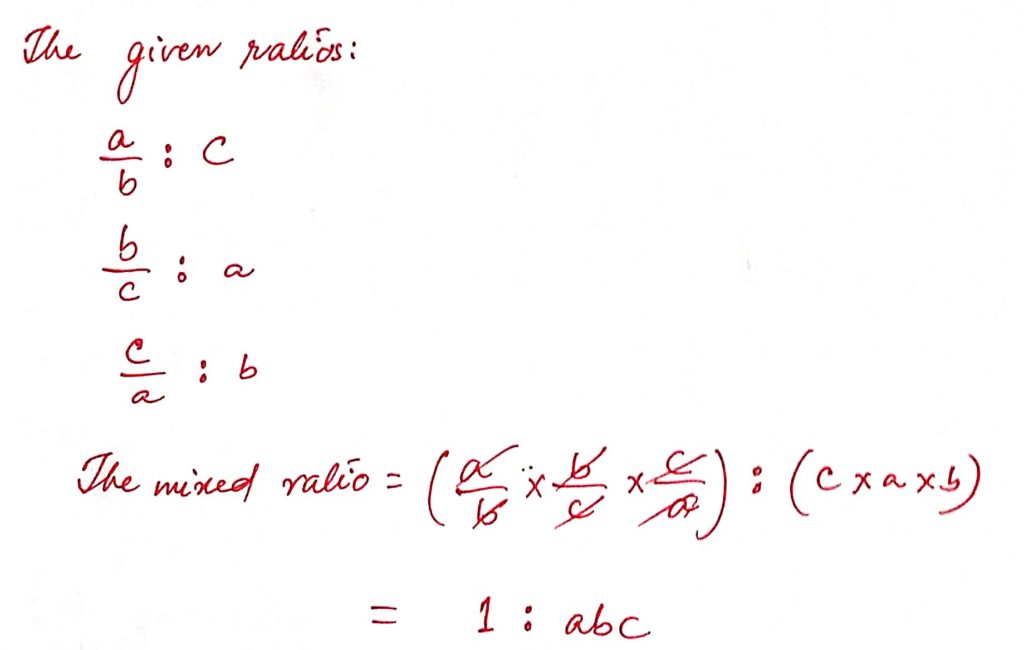 The given ratios:
a/b : c
b/c : a
c/a : b
The mixed ratio = (a/b × b/c × c/a) : (c × a × b)
= 1 : abc